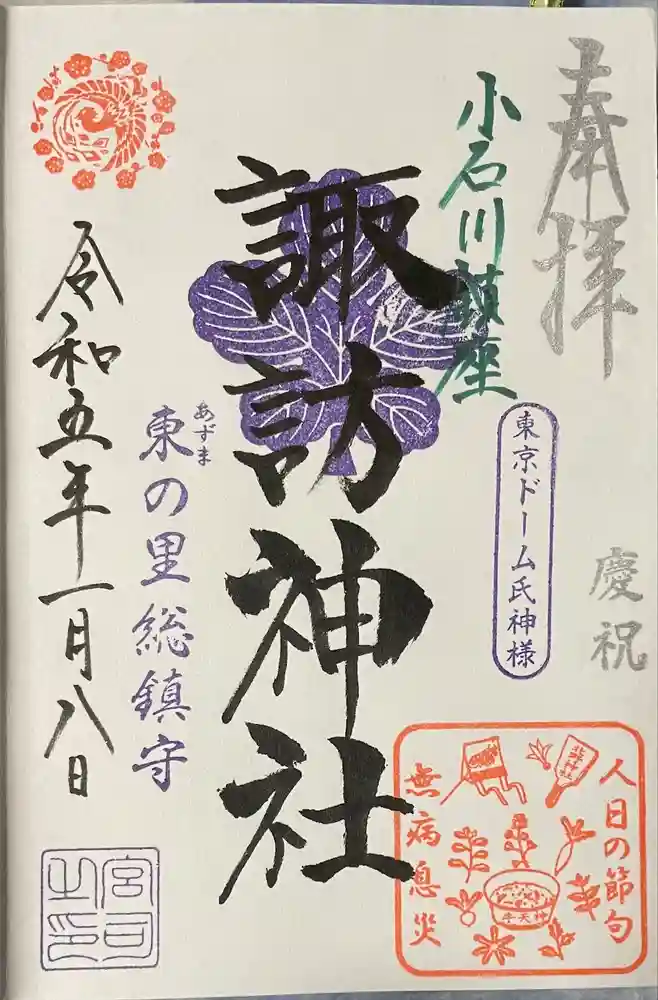 奉拝
慶祝
小石川鎮座
東京ドーム氏神様
人日の節句
無病息災
北野神社
牛天神
諏訪神社
東の里総鎮守
あずま
令和五年一月八日
宮司之印